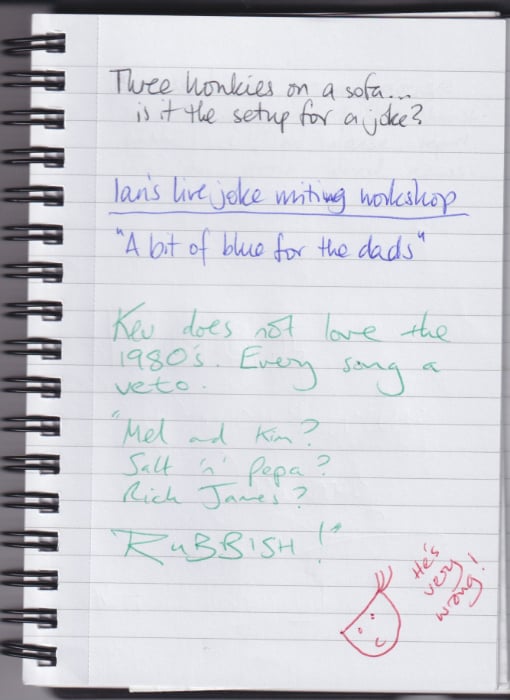 Three honkies on a sofa...
is it the setup for a joke?
Ian's live joke writing workshop
"A bit of blue for the dads"
Kev does not love the
1980's. Every song a
veto.
"Mel and Kim?
Salt 'n' Pepa?
Rick James?
RUBBISH!"
He's
very
wrong!